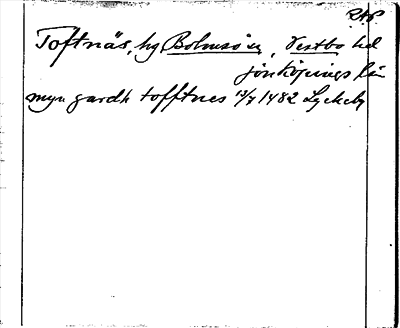 RAP
Toftnäs, by Bolmsö sn, Västbo hd
Jönköpings län
myn gardh tofftnes 13/7 1482 Lyckeby